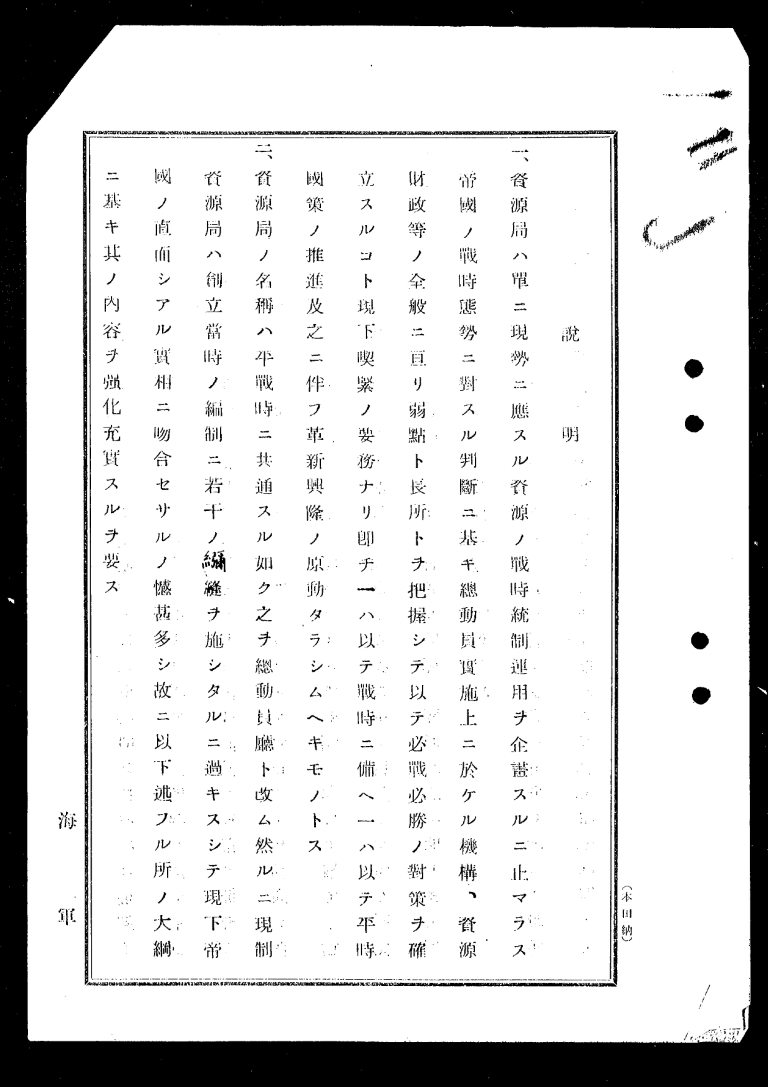 說明
一、資源局ハ單ニ現勢ニ應スル資源ノ戰時統制運用ヲ企畫スルニ止マラス
帝國ノ戰時態勢ニ對スル判斷ニ基キ總動員實施上ニ於ケル機構、資源
財政等ノ全般ニ亘リ弱點ト長所トヲ把握シテ以テ必戰必勝ノ對策ヲ確
立スルコト現下喫緊ノ要務ナリ卽チ一ハ以テ戰時ニ備ヘ一ハ以テ平時
國策ノ推進及之ニ伴フ革新興隆ノ原動タラシムヘキモノトス
二、資源局ノ名稱ハ平戰時ニ共通スル如ク之ヲ總動員廳ト改ム然ルニ現制
資源局ハ創立當時ノ編制ニ若干ノ彌縫ヲ施シタルニ過キスシテ現下帝
國ノ直面シアル實相ニ吻合セサルノ憾甚多シ故ニ以下述フル所ノ大綱
ニ基キ其ノ内容ヲ强化充實スルヲ要ス
海軍
(本田納)